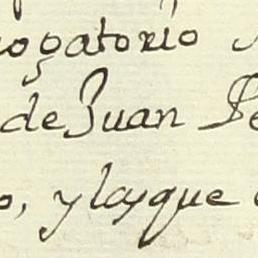 rogatorio
de Juan Pe
o, y las que